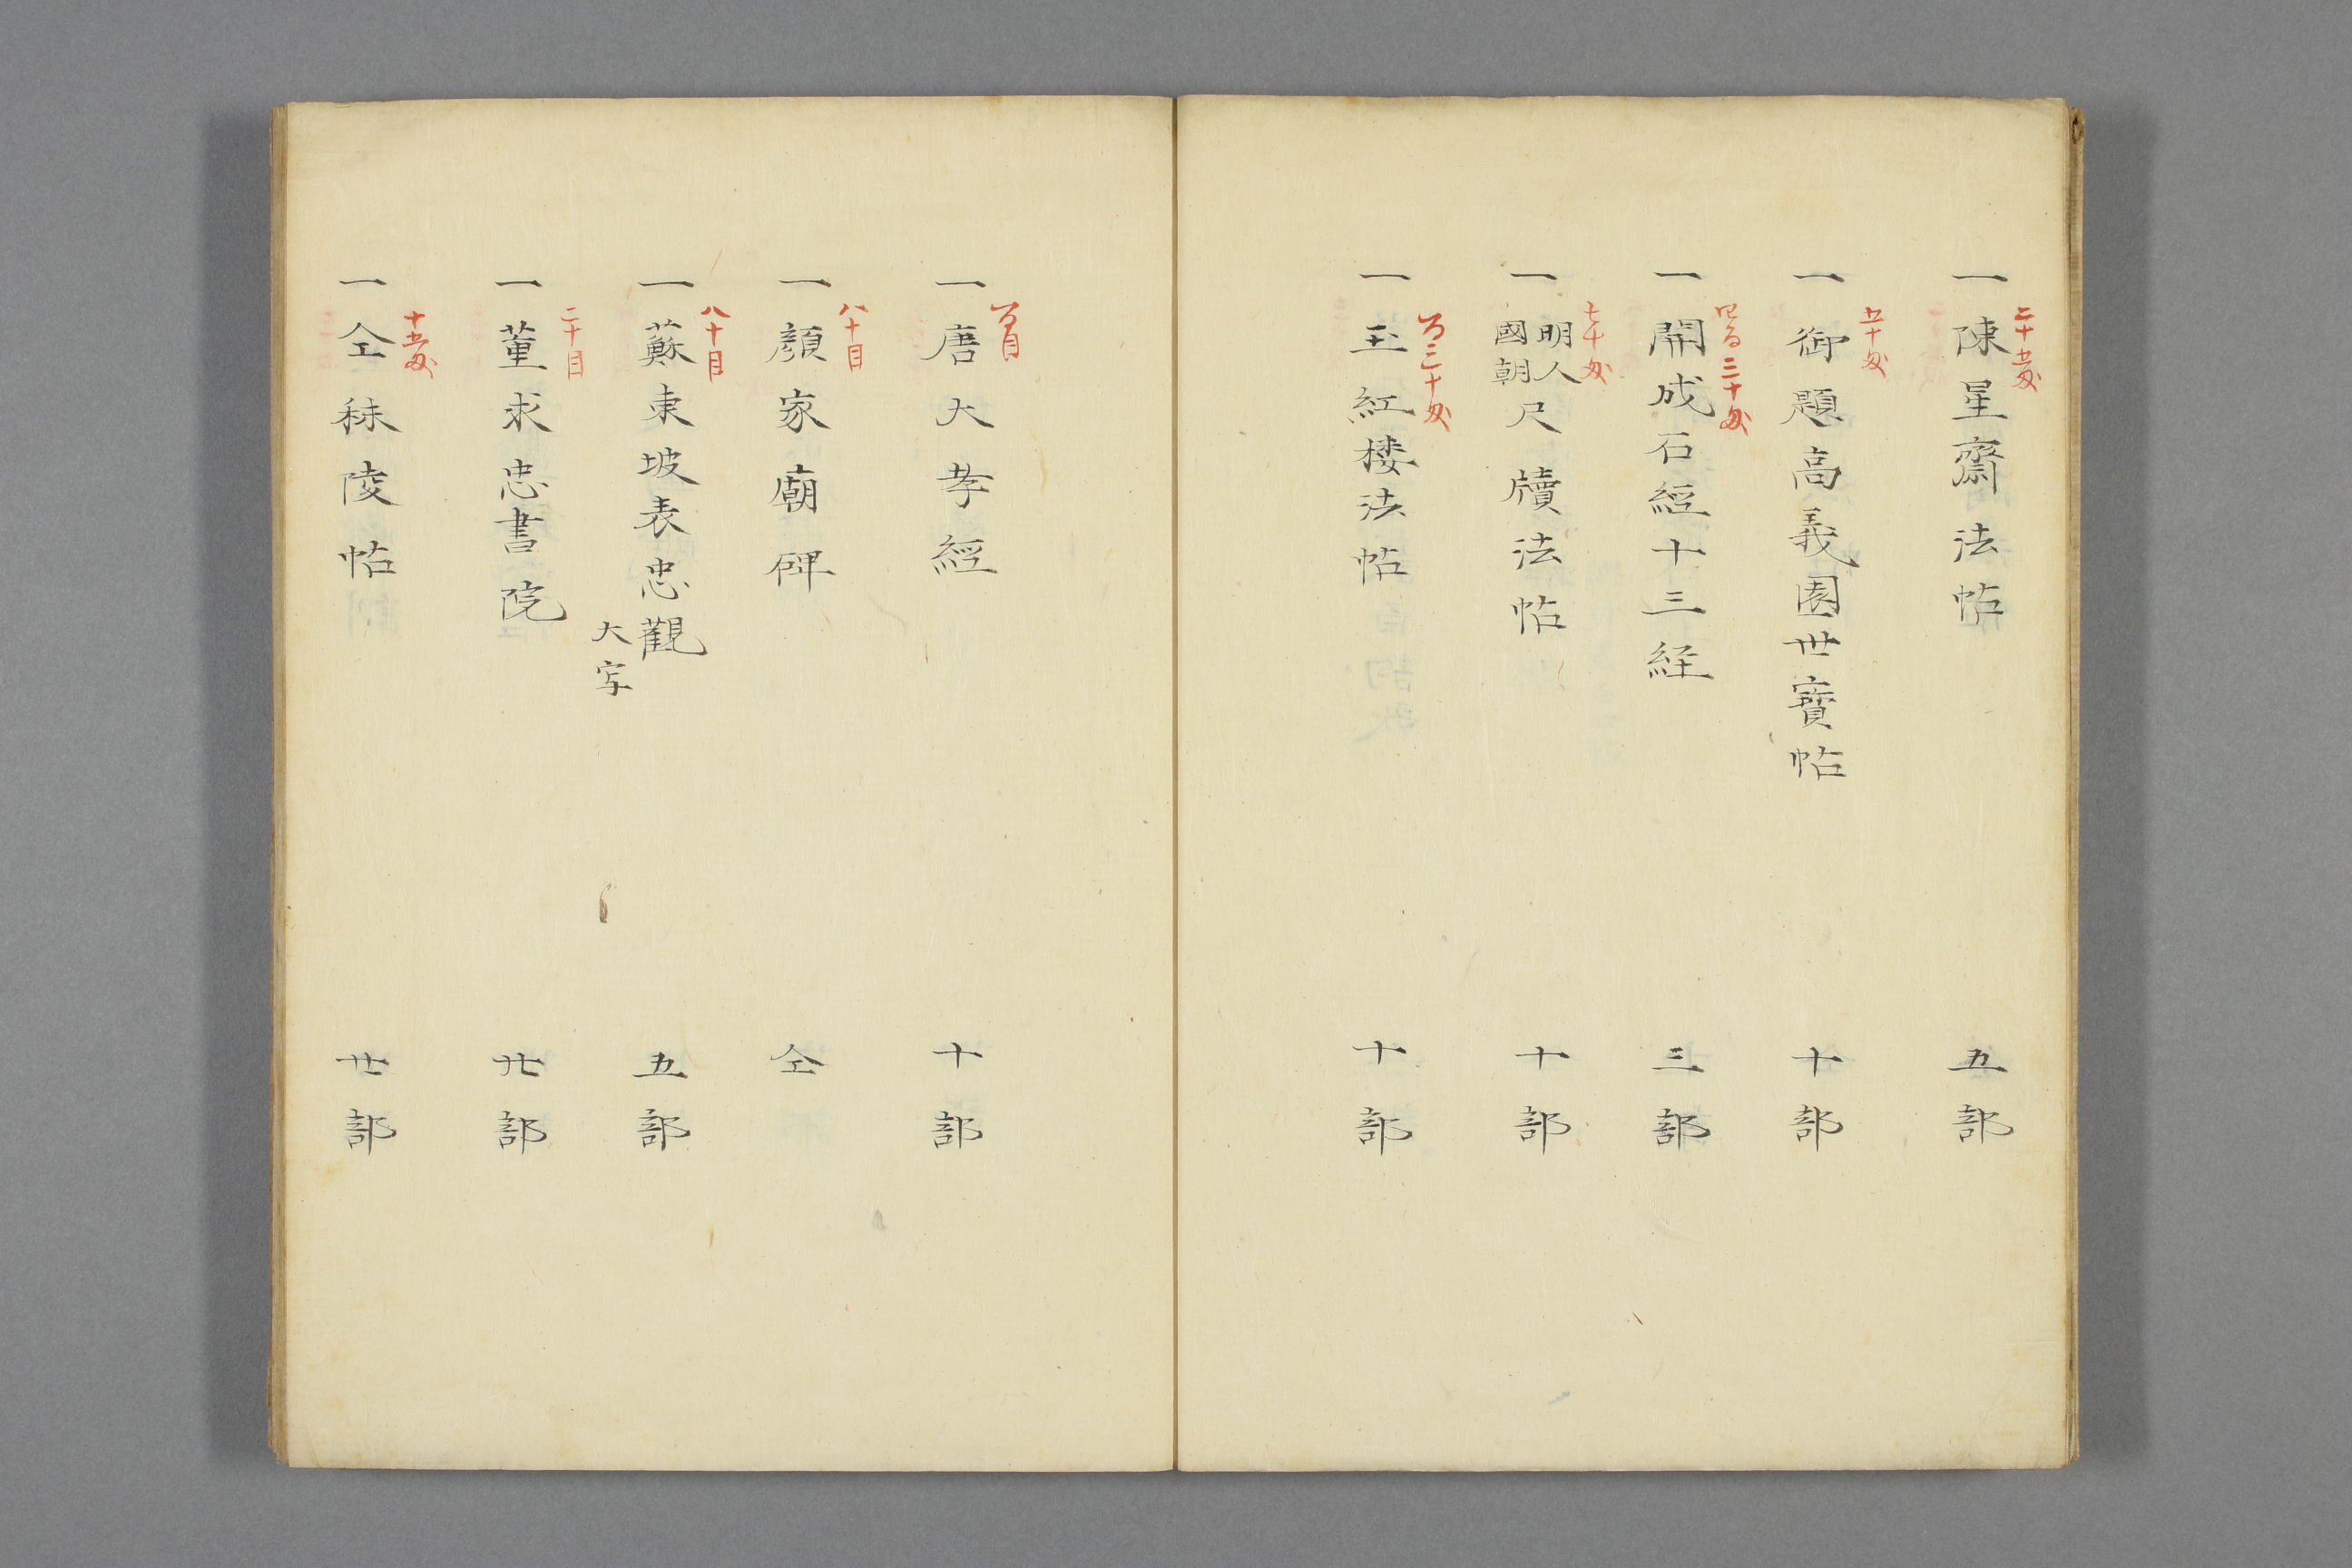 二十五匁
一陳星齋法帖 五部
五十匁
一御題高義園世寳帖 十部
四百三十匁
一開成石經十三経 三部
七十匁
一明人國朝尺牘法帖 十部
百三十匁
一玉紅楼法帖 十部
百目
一唐大孝經 十部
八十目
一顔家廟碑 仝
八十目
一蘓東坡表忠觀 五部
大字
二十目
一董求忠書院 廿部
十五匁
一仝秣陵帖 廿部